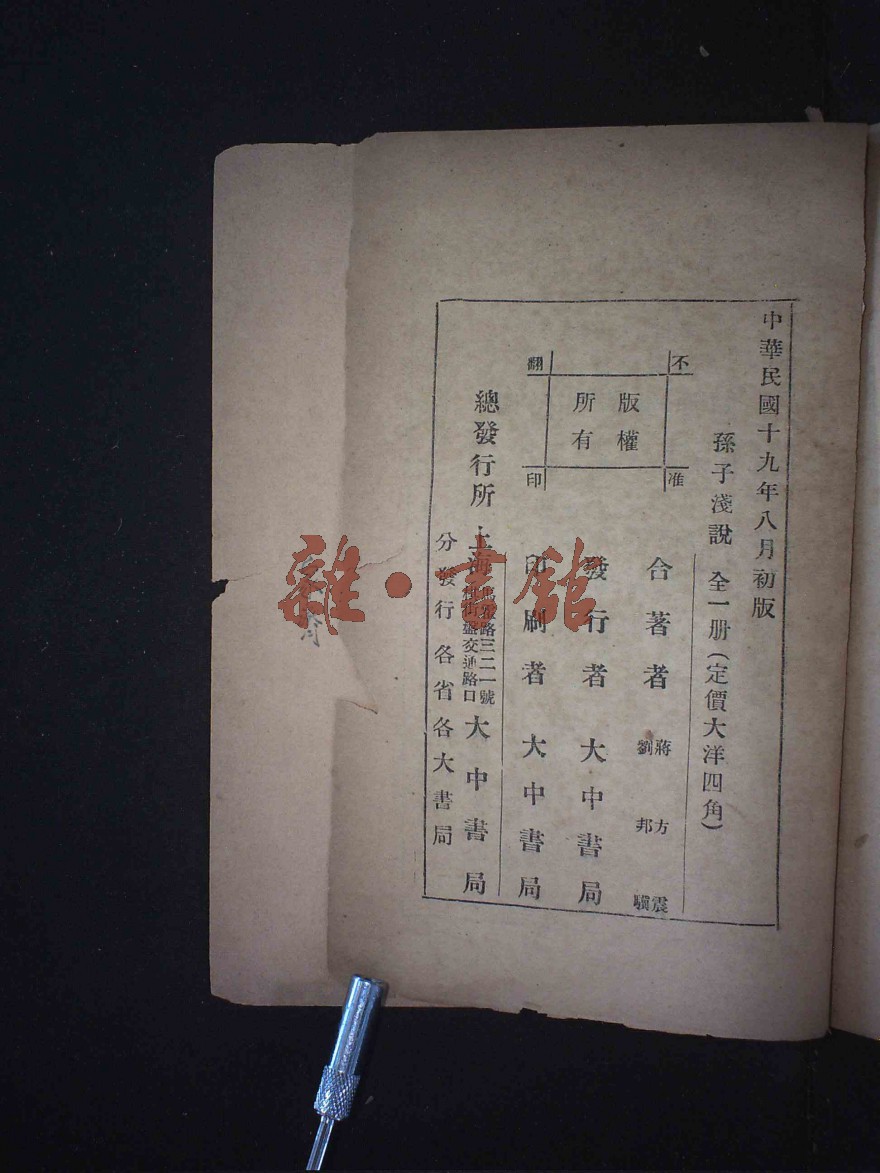 中華民國十九年八月初版
孫子淺說 全一册(定價大洋四角)
不准翻印
版權所有
合著者 蔣方震 劉邦驥
發行者 大中書局
印刷者 大中書局
總發行所 上海 路三二一號 盤交通路口 大中書局
分發行各省各大書局
雜·書館